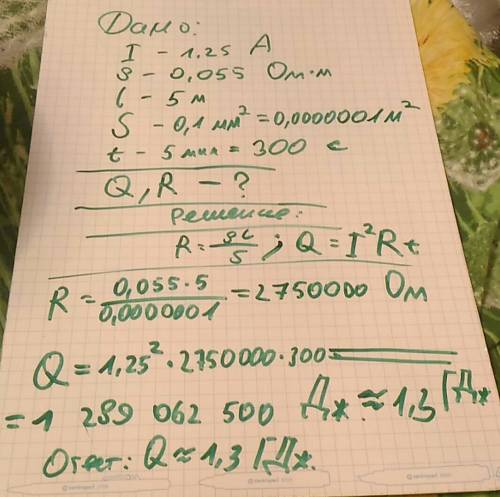 Дано:
I - 1.25 А
ρ - 0,055 Ом·м
l - 5 м
S - 0,1 мм² = 0,0000001 м²
t - 5 мин = 300 с
Q, R - ?
Решение:
R = ρl/S ; Q = I²Rt
R = 0,055·5/0,0000001 = 2750000 Ом
Q = 1,25²·2750000·300=
= 1 289 062 500 Дж ≈ 1,3 ГДж
Ответ: Q ≈ 1,3 ГДж.